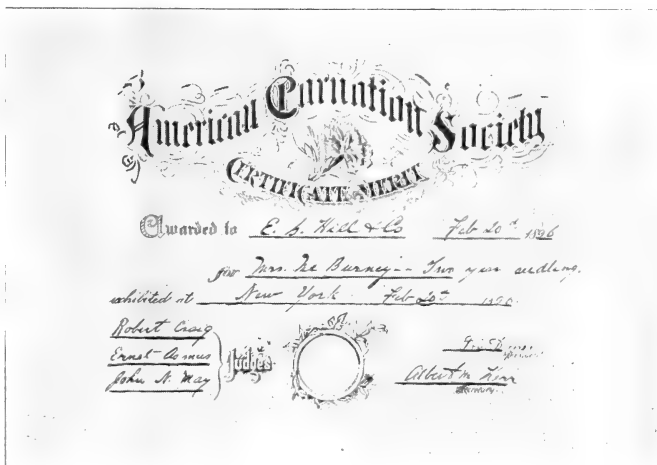 American Carnation Society
CERTIFICATE MERIT
Awarded to E. G. Hill & Co Feb 20th 1896
for Mrs. McBurney -- Two year seedling.
exhibited at New York Feb 20th 1896
Robert Craig
Ernst Asmus
John N. May
Judges
Albert M. Herr